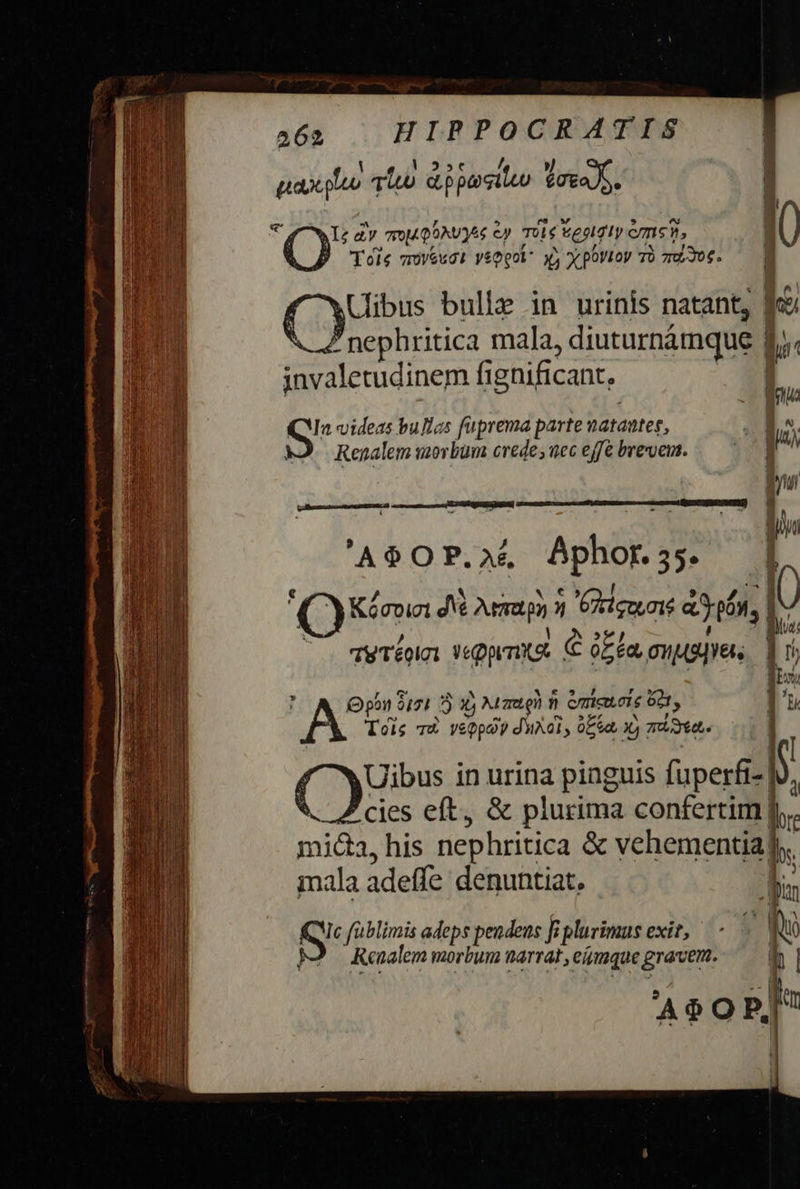 262 HIPPOCRATIS
μακρὴν τὴν ἀῤῥωσίην ἔσεσθαι.
Οἷς ἂν πομφόλυγες ἐν τοῖς ὔροισιν ἐπιστῇ,
Τοῖς πονέυσι νεφροί· καὶ χρόνιον τὸ πάθος.
QUibus bullæ in urinis natant,
nephritica mala, diuturnámque
invaletudinem ſignificant.
SIn videas bullas ſuprema parte natantes,
Renalem morbum crede, nec eſſe brevem.
ἈΦΟΡ. λέ. Aphor. 35.
ὉΚόσοισι δὲ λιπαρὴ ἡ ἐπίστασις ἀθρόη,
τουτέοισι νεφριτικὰ καὶ ὀξέα σημαίνει.
Ἀθρόη ὅτισι δὲ καὶ λιπαρὴ ἡ ἐπίστασίς ἐστι,
Τοῖς τὰ νεφρῶν δηλοῖ, ὀξέα καὶ πάθεα.
QUibus in urina pinguis ſuperfi-
cies eſt, & plurima confertim
micta, his nephritica & vehementia
mala adeſſe denuntiat.
SIc ſublimis adeps pendens ſi plurimus exit,
Renalem morbum narrat, eúmque gravem.
ἈΦΟΡ.